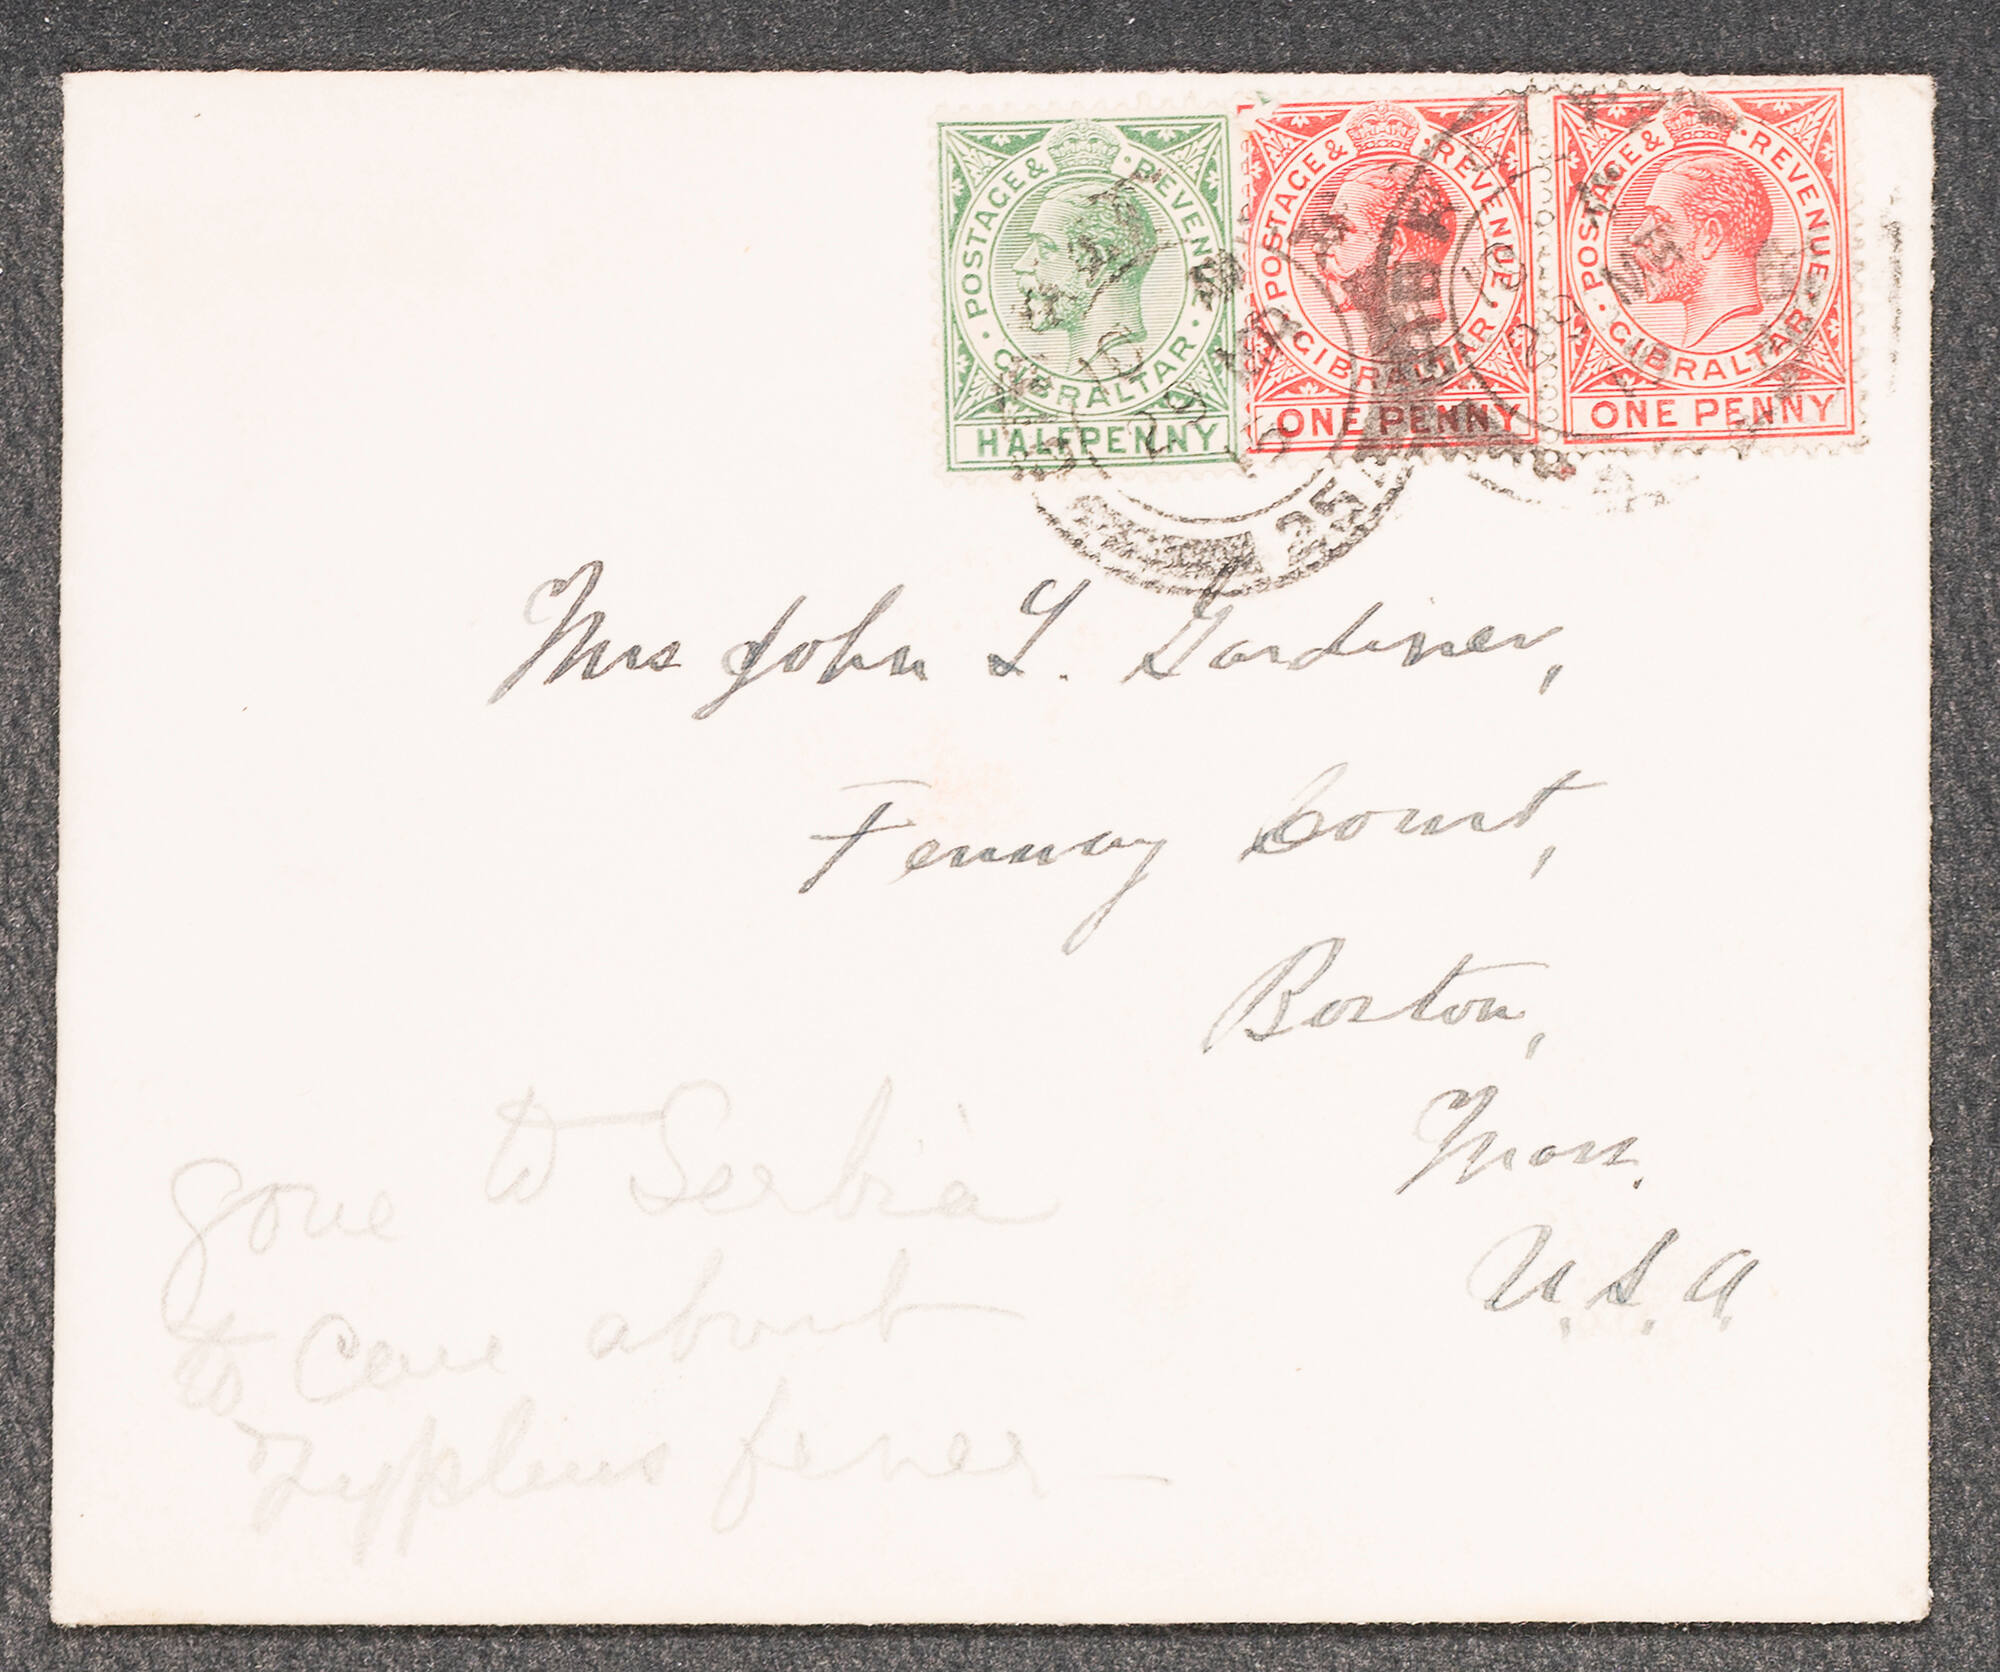 POSTAGE & REVENUE
GIBRALTAR
HALFPENNY
POSTAGE & REVENUE
GIBRALTAR
ONE PENNY
POSTAGE & REVENUE
GIBRALTAR
ONE PENNY
25
Mrs John L. Gardiner,
Fenway Court,
Boston,
Mass.
U.S.A.
gone to Serbia
to care about
Typhus fever